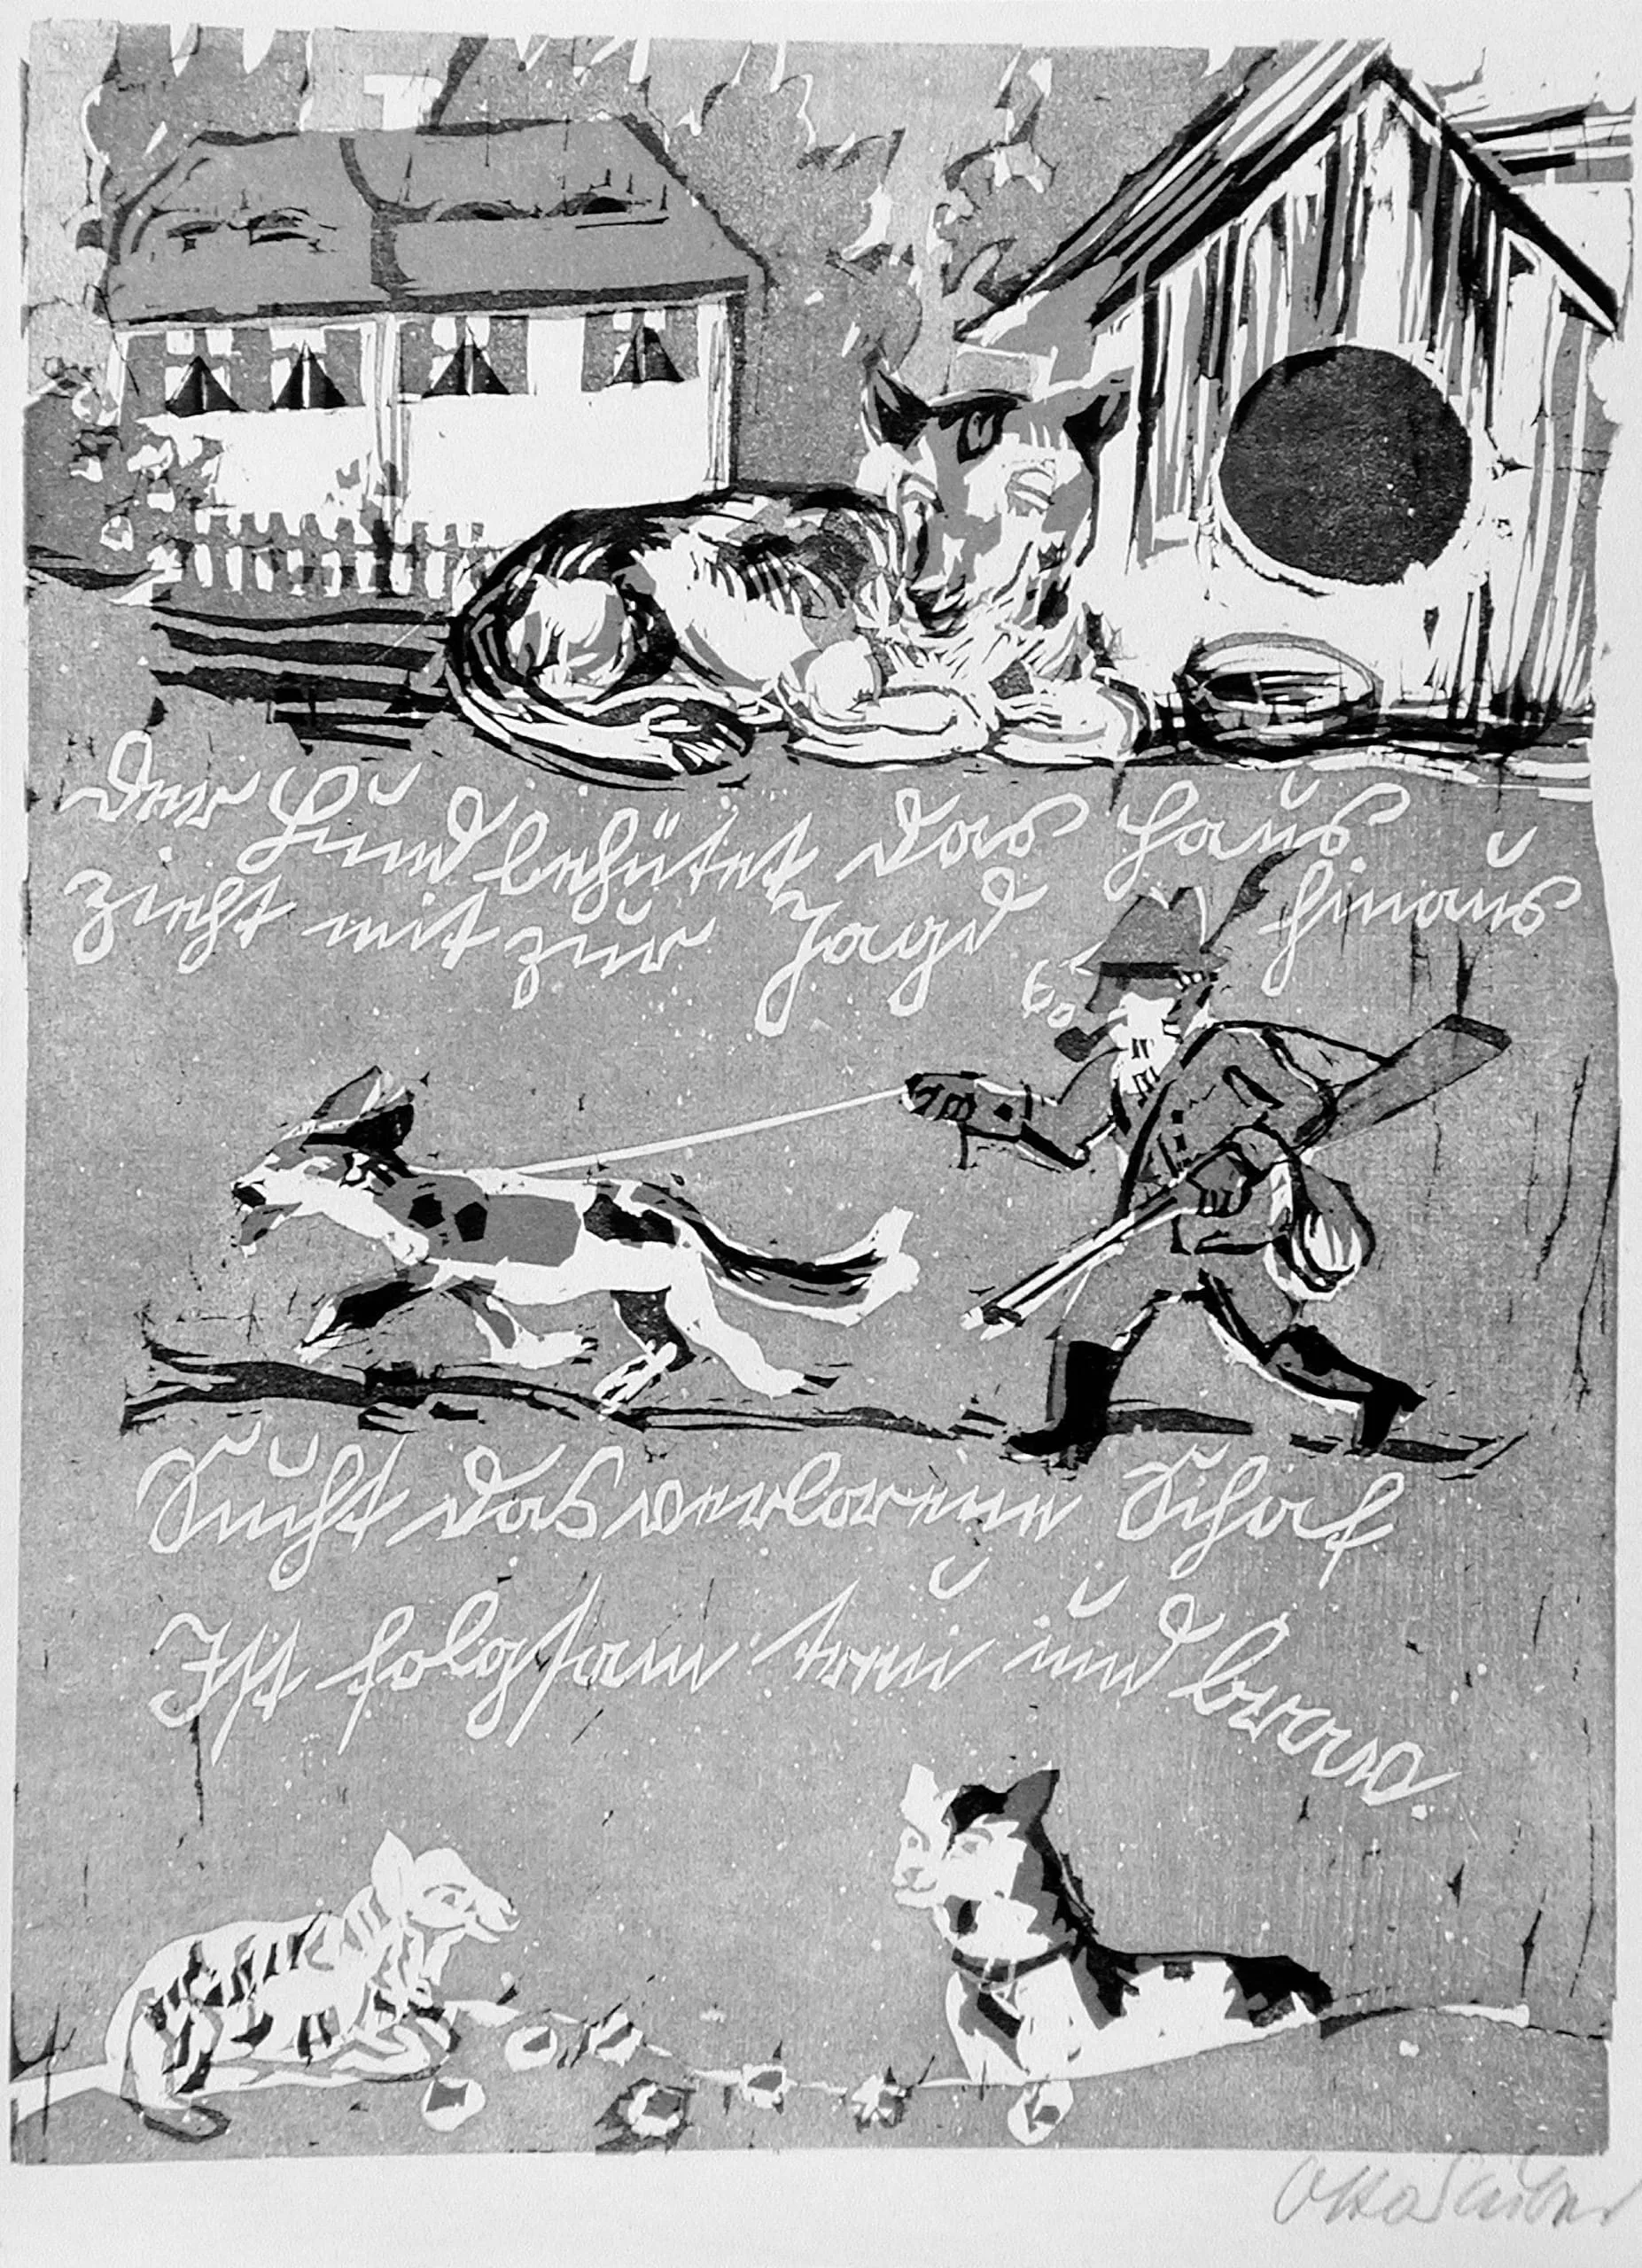 Der Hund behütet das Haus
zieht mit zur Jagd hinaus
Sucht das verlorene Schaf
Ist folgsam treu und brav.
Otto